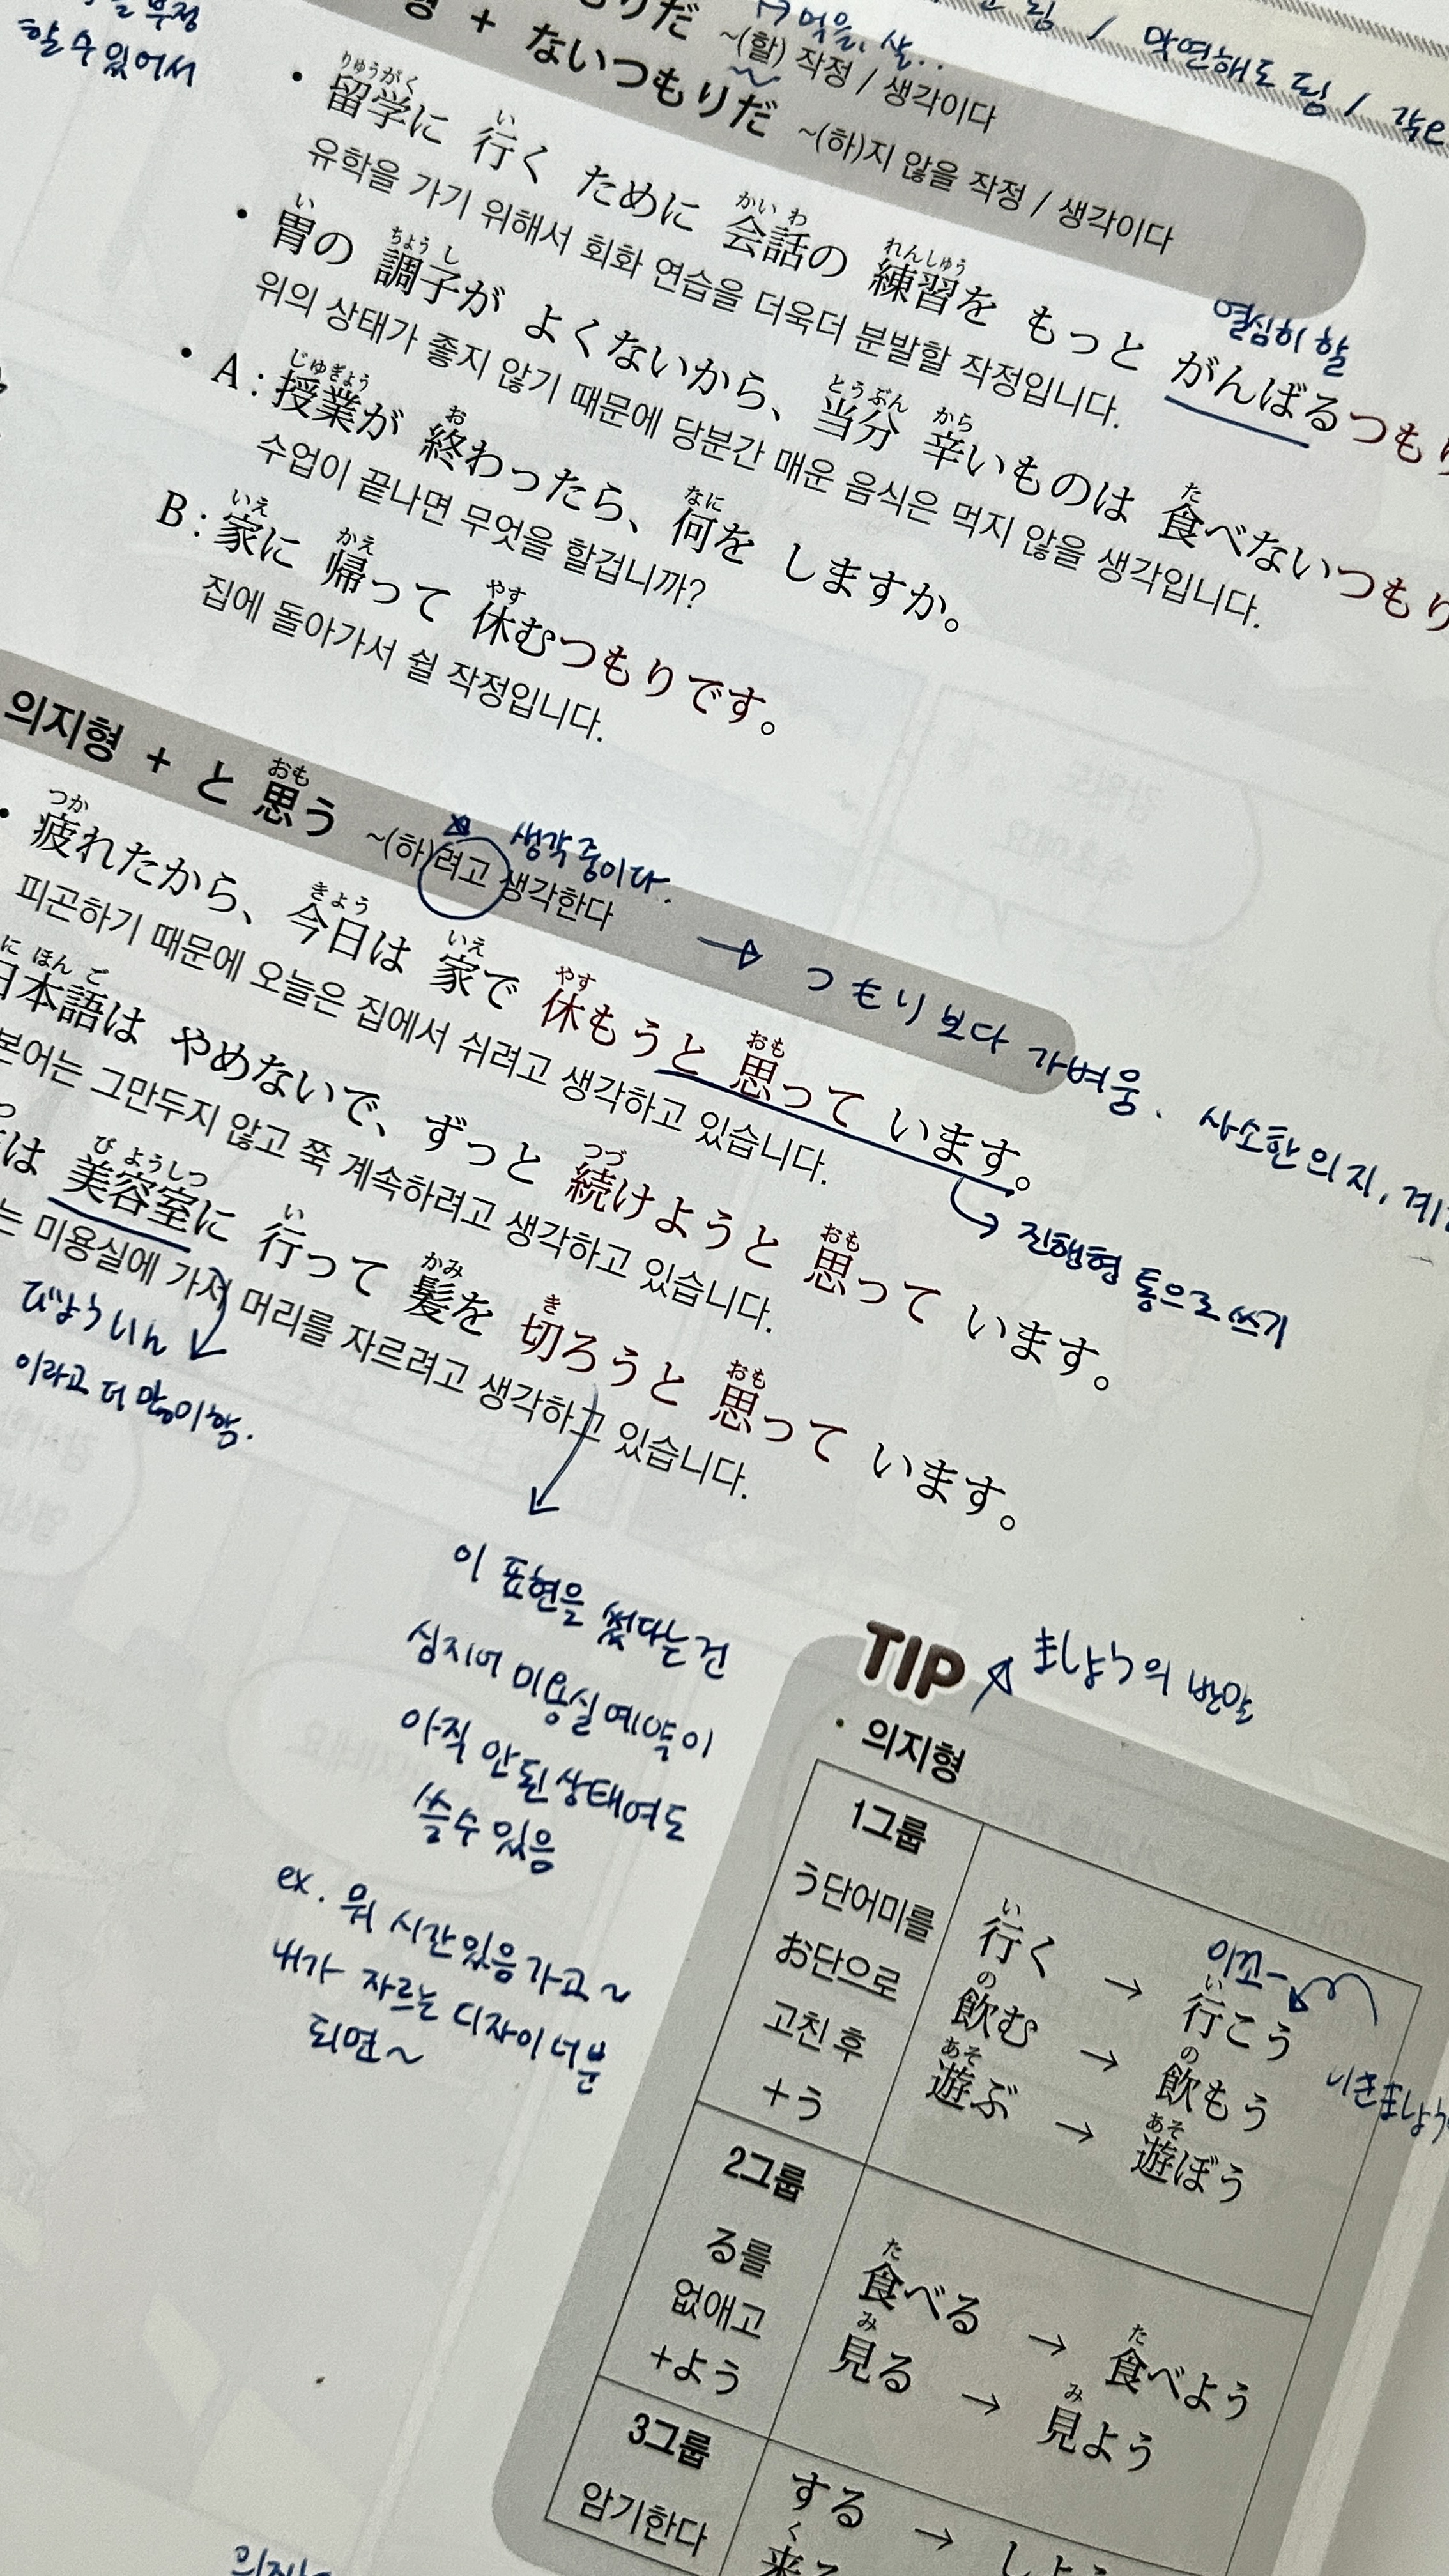 부정
할 수 있어서
막연해도 됨 /
먹을, 살..
りだ ~(할) 작정 / 생각이다
형 + ないつもりだ ~(하)지 않을 작정 / 생각이다
열심히 할
• 留学に 行く ために 会話の 練習を もっと がんばるつもり
りゅうがく い かい わ れんしゅう
유학을 가기 위해서 회화 연습을 더욱더 분발할 작정입니다.
• 胃の 調子が よくないから、当分 辛いものは 食べないつもり
い ちょう し とうぶん から た
위의 상태가 좋지 않기 때문에 당분간 매운 음식은 먹지 않을 생각입니다.
• A : 授業が 終わったら、何を しますか。
じゅぎょう お なに
수업이 끝나면 무엇을 할겁니까?
B : 家に 帰って 休むつもりです。
いえ かえ やす
집에 돌아가서 쉴 작정입니다.
의지형 + と 思う ~(하)려고 생각한다
おも
생각 중이다.
→ つもり 보다 가벼움. 사소한 의지,
• 疲れたから、今日は 家で 休もうと 思って います。
つか きょう いえ やす おも
피곤하기 때문에 오늘은 집에서 쉬려고 생각하고 있습니다.
진행형 통으로 쓰기
日本語は やめないで、ずっと 続けようと 思って います。
に ほん ご つづ おも
본어는 그만두지 않고 쭉 계속하려고 생각하고 있습니다.
は 美容室に 行って 髪を 切ろうと 思って います。
び ようしつ い かみ き おも
는 미용실에 가서 머리를 자르려고 생각하고 있습니다.
びよういん
이라고 더 많이 함.
이 표현을 썼다는건
심지어 미용실 예약이
아직 안된 상태여도
쓸 수 있음
ex. 뭐 시간있음 가고~
내가 자르는 디자이너분
되면~
TIP
ましょう의 반말
• 의지형
1그룹
う단어미를
お단으로
고친 후
+う
行く → 行こう
い い
이꼬-
いきましょう
飲む → 飲もう
の の
遊ぶ → 遊ぼう
あそ あそ
2그룹
る를
없애고
+よう
食べる → 食べよう
た た
見る → 見よう
み み
3그룹
암기한다
する → しよう
く
来る